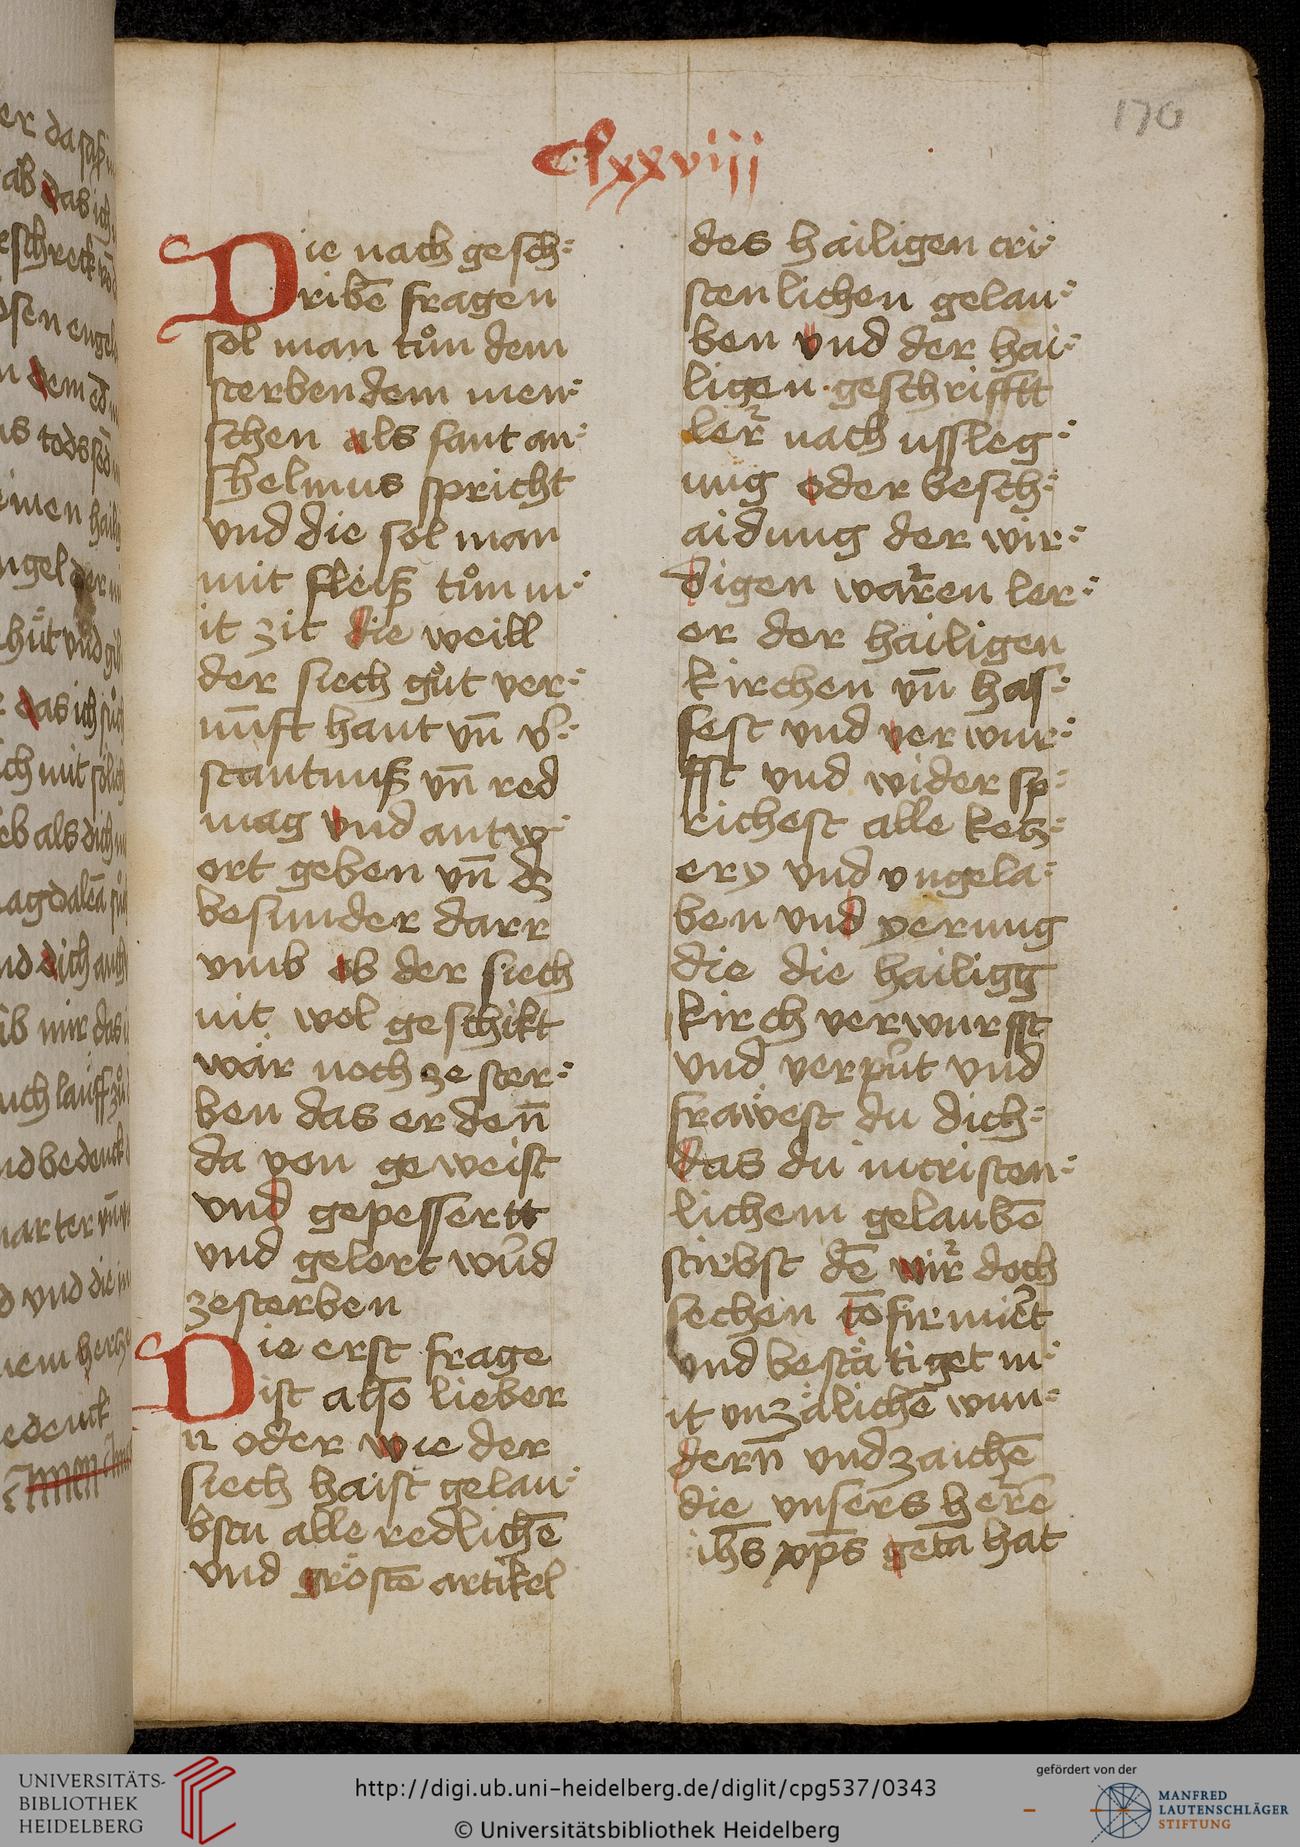 170
Clxxviij
Die nach gesch⸗
ribē fragen
sol man tůn dem
sterbendem men⸗
schen als sant an⸗
shelmus spricht
vnd die sol man
mit fleiß tůn m⸗
it zit die weill
der siech gůt ver⸗
nūnft haut vn̄ v̾⸗
stantnuß vn̄ red
mag vnd antw⸗
ort geben vn̄ dz
besunder darr
vmb ob der siech
nit wol geschikt
wär noch ze ster⸗
ben das er den̄
da von geweist
vnd gepessertt
vnd gelert wu̾d
zesterben
Die erst frage
ist also lieber
n oder wie der
siech haist gelau⸗
bstu alle redlichē
vnd gröstē artikel
des hailigen cri⸗
stenlichen gelau⸗
ben vnd der hai⸗
ligen geschrifftt
ler nach vssleg⸗
ung oder besch⸗
aidung der wir⸗
digen waren ler⸗
er der hailigen
kirchen vn̄ has⸗
sest vnd verwur⸗
fst vnd widersp⸗
richest alle ketz⸗
ery vnd vngela⸗
ben vnd yerung
die die hailigg
kirch verwurfft
vnd verpu̾t vnd
fräwest du dich⸗
das du in cristen⸗
lichem gelaubē
stirbst dē wir doch
sechen cōfirmiert
vnd bestätiget m⸗
it vnzälichē wun⸗
dern̄ vnd zaichē
die vnsers herrē
ihs xp̄s getā hat
UNIVERSITÄTS-
BIBLIOTHEK
HEIDELBERG
http://digi.ub.uni-heidelberg.de/diglit/cpg537/0343
© Universitätsbibliothek Heidelberg
gefördert von der
MANFRED
LAUTENSCHLÄGER
STIFTUNG